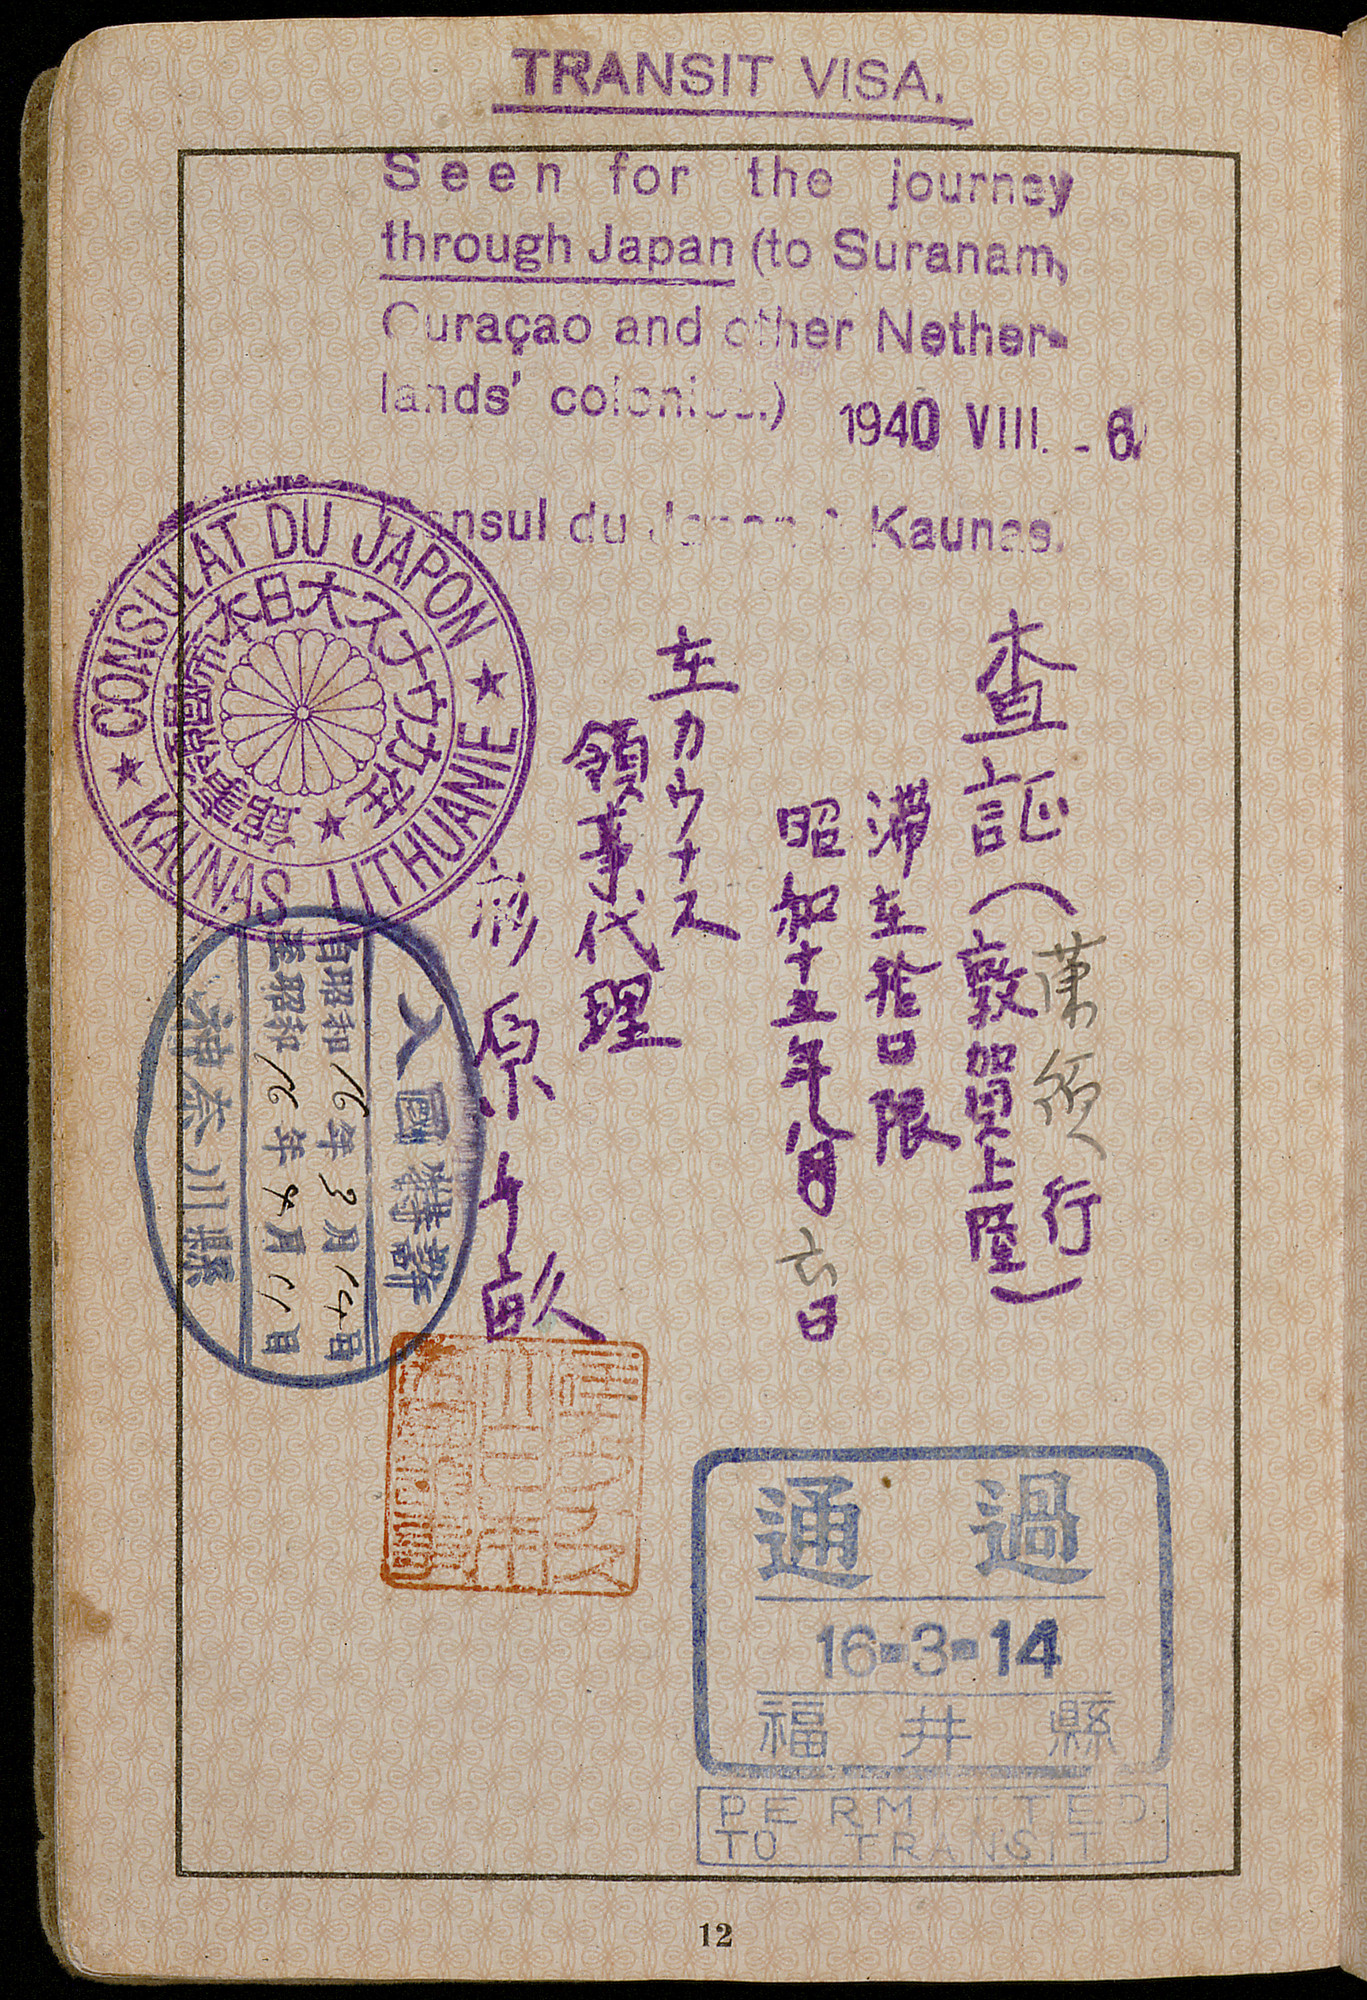 TRANSIT VISA.
Seen for the journey
through Japan (to Suranam,
Curaçao and other Nether-
lands' colonies.)
1940 VIII. - 6
Consul du Japon à Kaunas.
CONSULAT DU JAPON
KAUNAS LITHUANIE
在カウナス大日本帝國領事館
査証(敦賀上陸)
行
滞在拾日限
昭和十五年八月六日
在カウナス
領事代理
杉原千畝
入國特許
自昭和16年3月14日
至昭和16年4月11日
神奈川縣
通過
16-3-14
福井縣
PERMITTED
TO TRANSIT
12